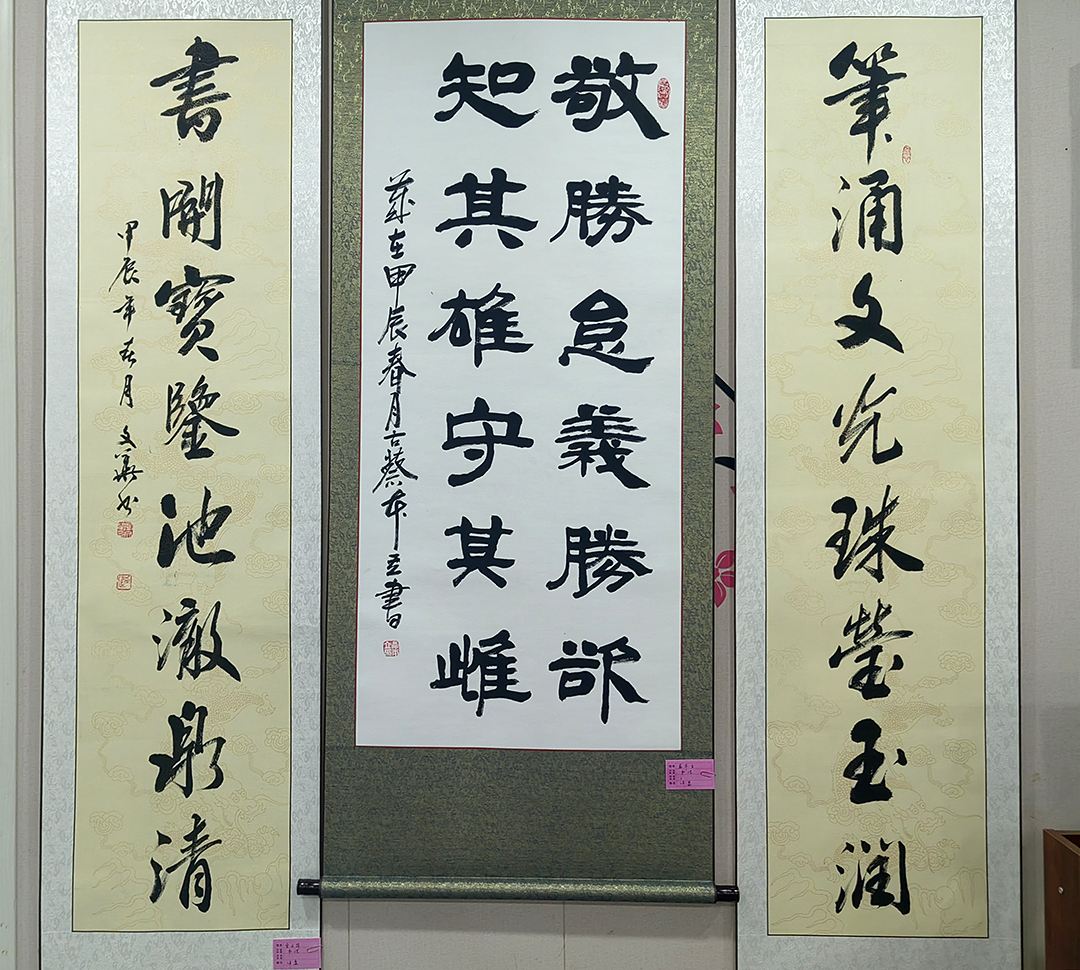 筆涌文光珠瑩玉潤
敬勝怠義勝欲
知其雄守其雌
歲在甲辰春月古蔡本立書
書開寶鑒池澈泉清
甲辰年春月文華书